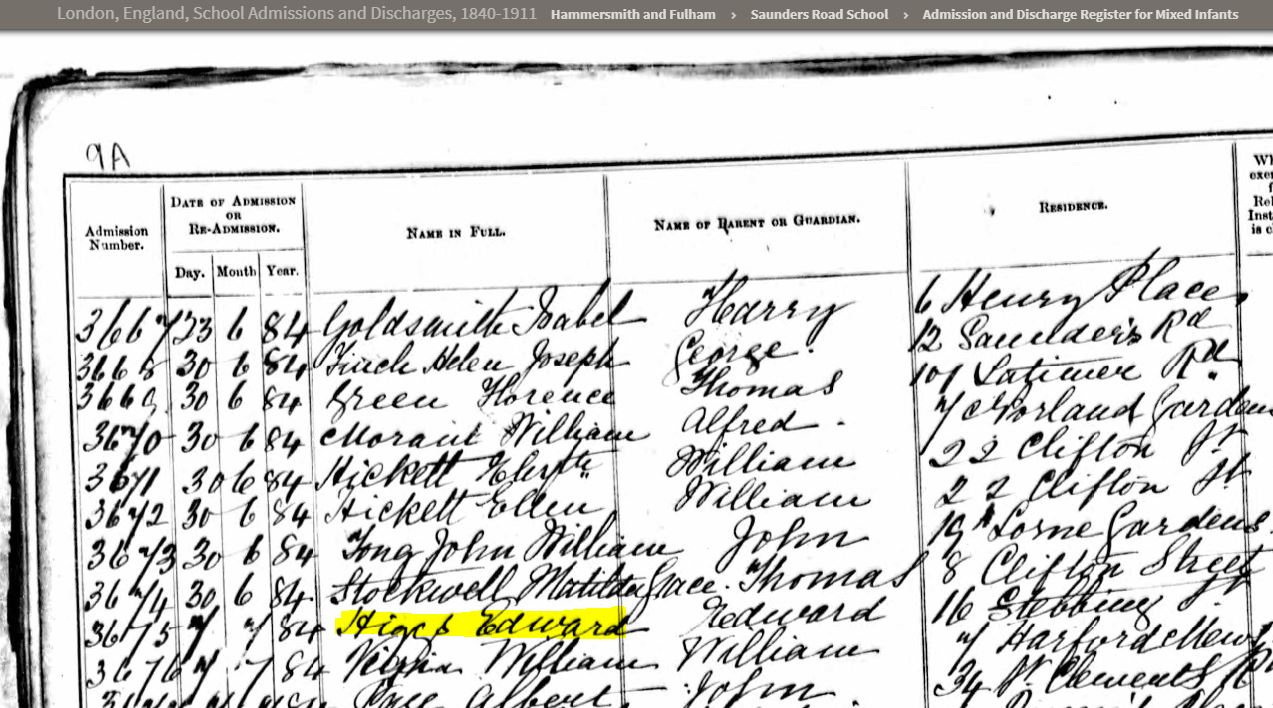 London, England, School Admissions and Discharges, 1840-1911 Hammersmith and Fulham › Saunders Road School › Admission and Discharge Register for Mixed Infants
9A
Admission Number.
DATE OF ADMISSION OR RE-ADMISSION.
Day. Month Year.
NAME IN FULL.
NAME OF PARENT OR GUARDIAN.
RESIDENCE.
3667 23 6 84 Goldsmith Isabel Harry 6 Henry Place
3668 30 6 84 Finch Helen Joseph George. 12 Saunder's Rd
3669 30 6 84 Green Florence Thomas 101 Latimer Rd
3670 30 6 84 Morant William Alfred 7 Norland Gardens
3671 30 6 84 Hickett Elizth William 22 Clifton St
3672 30 6 84 Hickett Ellen William 22 Clifton St
3673 30 6 84 Tong John William John 19A Lorne Gardens
3674 30 6 84 Stockwell Matilda Grace. Thomas 8 Clifton Street
3675 7 7 84 Higgs Edward Edward 16 Stebbing St
3676 7 7 84 William William 7 Harford Mews
Albert John 34 St. Clements